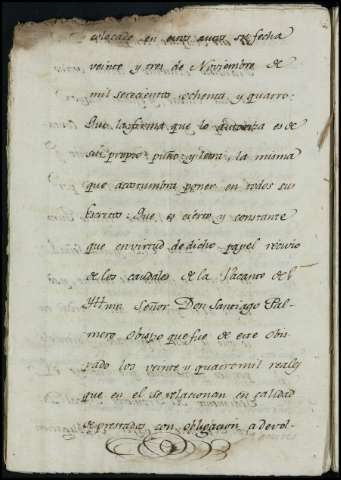 colocado en estos autos su fecha
veinte y tres de Noviembre de
mil setecientos ochenta y quatro:
Que la firma que lo autoriza es de
su propio puño y letra, la misma
que acostumbra poner en todos sus
Escritos: Que es cierto y constante
que en virtud de dicho papel recivio
de los caudales de la Vacante del
Illmo. Señor Don Santiago Pal-
mero Obispo que fue de este Obis-
pado los veinte y quatro mil reales
que en el se relacionan en calidad
de prestados con obligacion a devol-